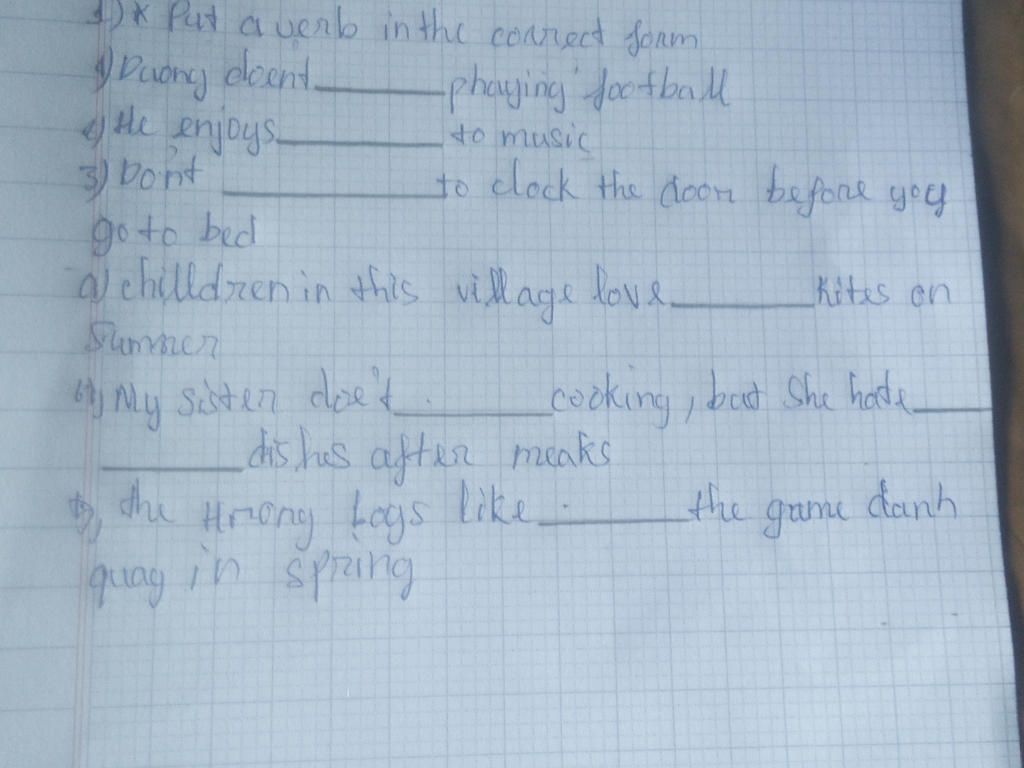 1) * Put a verb in the correct form
1) Duong doent ________ phaying football
2) He enjoys ________ to music
3) Don't ________ to clock the door before yoy
go to bed
a) chilldren in this village love ________ kites on
Summer
My sister doe't ________ cooking, but She hate ____
________ dishes after meaks
the Hmong boys like ________ the game danh
quay in spring